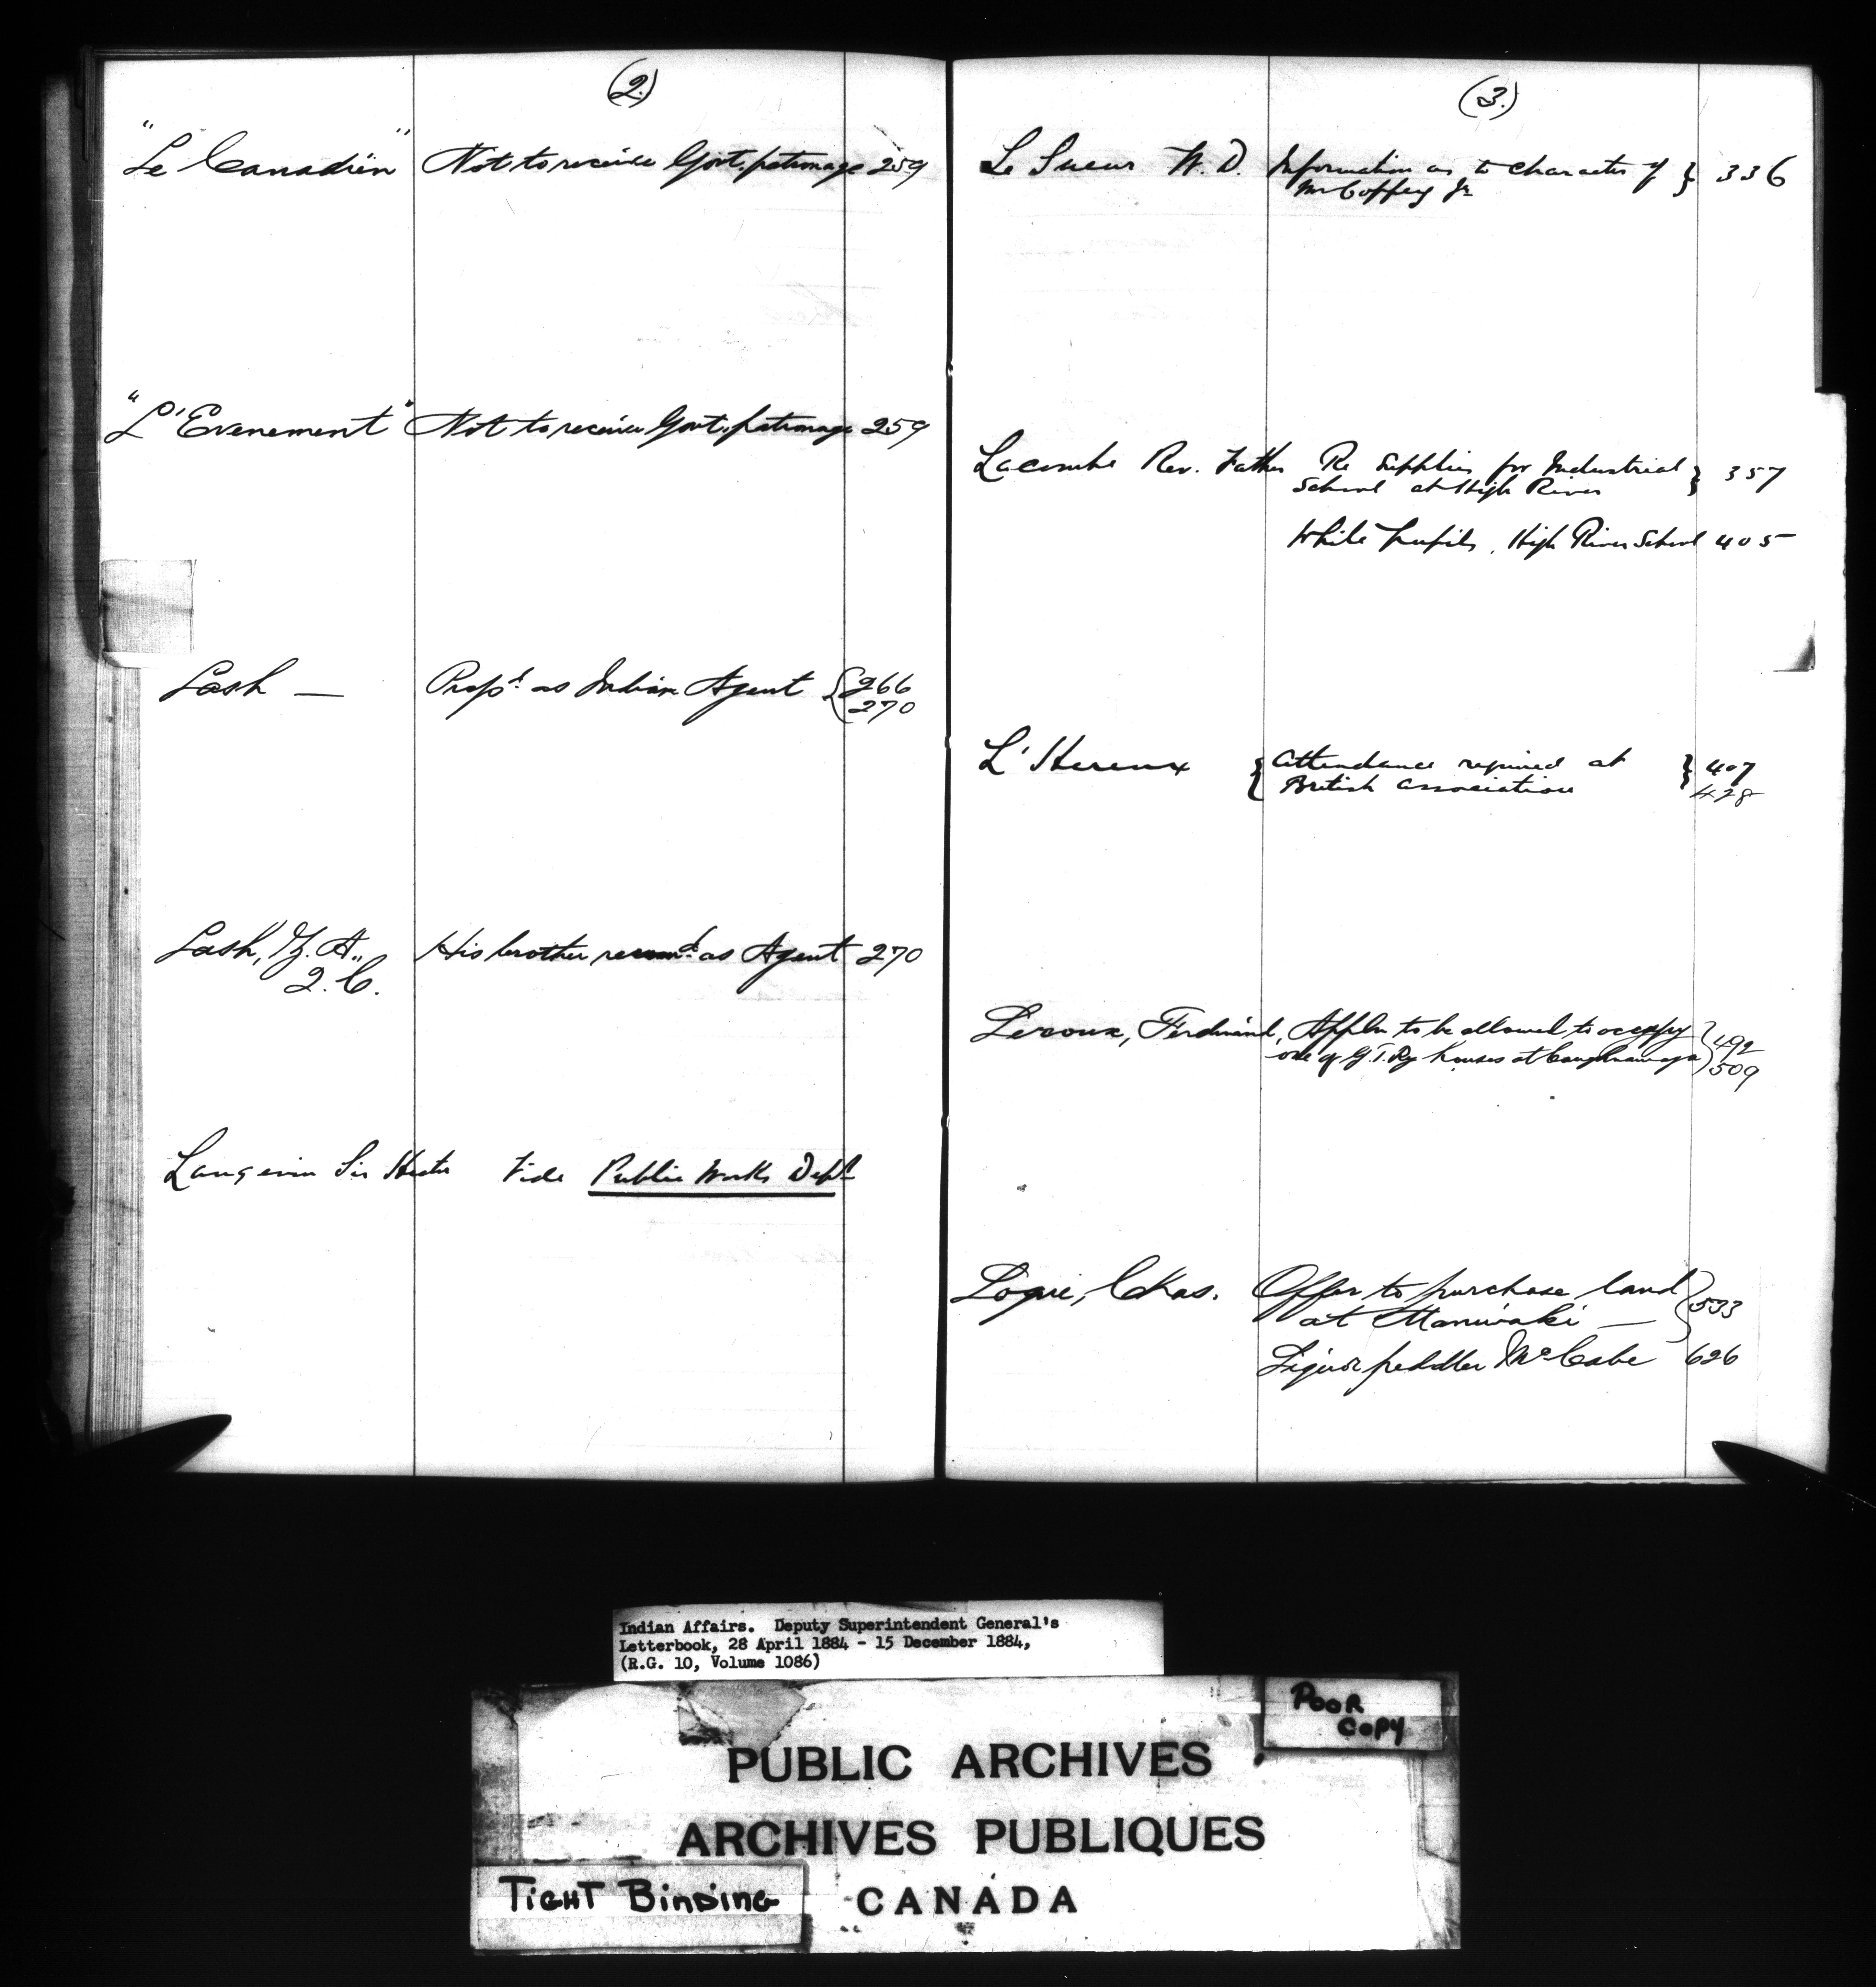 (2.)
"Le Canadien" Not to receive Govt. patronage 259
"L'Evenement" Not to receive Govt. patronage 259
Lash — Propd. as Indian Agent { 266
270
Lash, Z. A., His brother recomd. as Agent 270
Q.C.
Langevin Sir Hector Vide Public Works Dept
(3.)
Le Sueur W. D. Information as to character of } 336
Mr Coffey Jr
Lacombe Rev. Father Re Supplies for Industrial } 357
School at High River
White pupils, High River School 405
L'Hereux { Attendance required at } 407
British Association 428
Leroux, Ferdinand, Appln to be allowed to occupy } 492
one of G.T.Ry houses at Caughnawaga 509
Logue, Chas. Offer to purchase land } 533
at Maniwaki —
Liquor peddler McCabe 626
Indian Affairs. Deputy Superintendent General's
Letterbook, 28 April 1884 - 15 December 1884,
(R.G. 10, Volume 1086)
POOR
COPY
PUBLIC ARCHIVES
ARCHIVES PUBLIQUES
TIGHT BINDING
CANADA